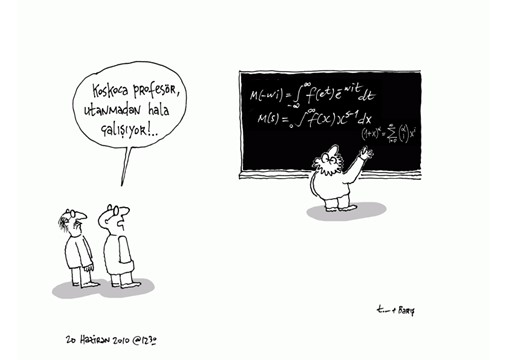 Koskoca profesör,
utanmadan hala
çalışıyor!..
M(-wi) = ∫_{-∞}^{∞} f(e^t) e^{-wit} dt
M(s) = ∫_0^∞ f(x) x^{s-1} dx
20 Haziran 2010 @1230